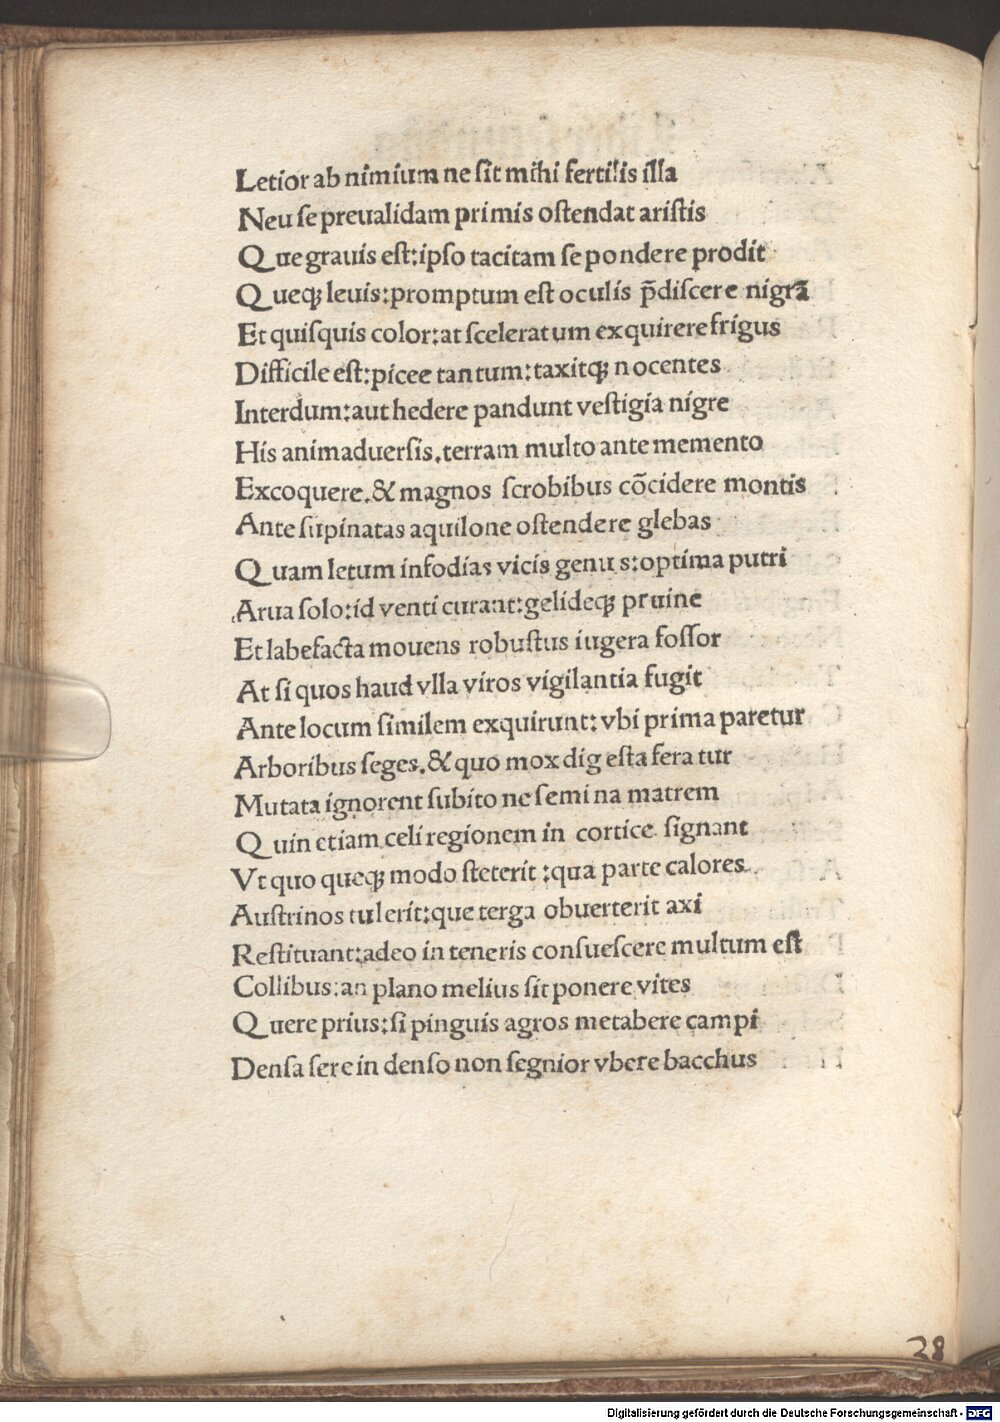 Letior ab nimium ne ſit mihi fertilis illa
Neu ſe preualidam primis oſtendat ariſtis
Que grauis eſt: ipſo tacitam ſe pondere prodit
Queqꝫ leuis: promptum eſt oculis p̄diſcere nigrā
Et quiſquis color: at ſceleratum exquirere frigus
Difficile eſt: picee tantum: taxitqꝫ nocentes
Interdum: aut hedere pandunt veſtigia nigre
His animaduerſis. terram multo ante memento
Excoquere. & magnos ſcrobibus cōcidere montis
Ante ſupinatas aquilone oſtendere glebas
Quam letum infodias vicis genus: optima putri
Arua ſolo: id venti curant: gelideqꝫ pruine
Et labefacta mouens robuſtus iugera foſſor
At ſi quos haud vlla viros vigilantia fugit
Ante locum ſimilem exquirunt: vbi prima paretur
Arboribus ſeges. & quo mox digeſta feratur
Mutata ignorent ſubito ne ſemina matrem
Quin etiam celi regionem in cortice ſignant
Vt quo queqꝫ modo ſteterit: qua parte calores
Auſtrinos tulerit: que terga obuerterit axi
Reſtituant: adeo in teneris conſueſcere multum eſt
Collibus: an plano melius ſit ponere vites
Quere prius: ſi pinguis agros metabere campi
Denſa ſere in denſo non ſegnior vbere bacchus
28
Digitalisierung gefördert durch die Deutsche Forschungsgemeinschaft - DFG